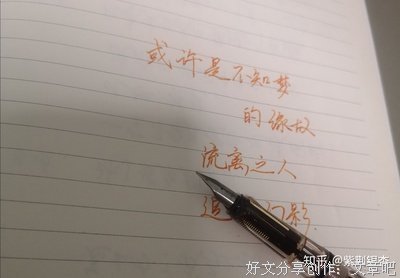 或许是不知梦
的缘故
流离之人
追 幻影
知乎 @紫荆银杏
好文分享创作：文章吧